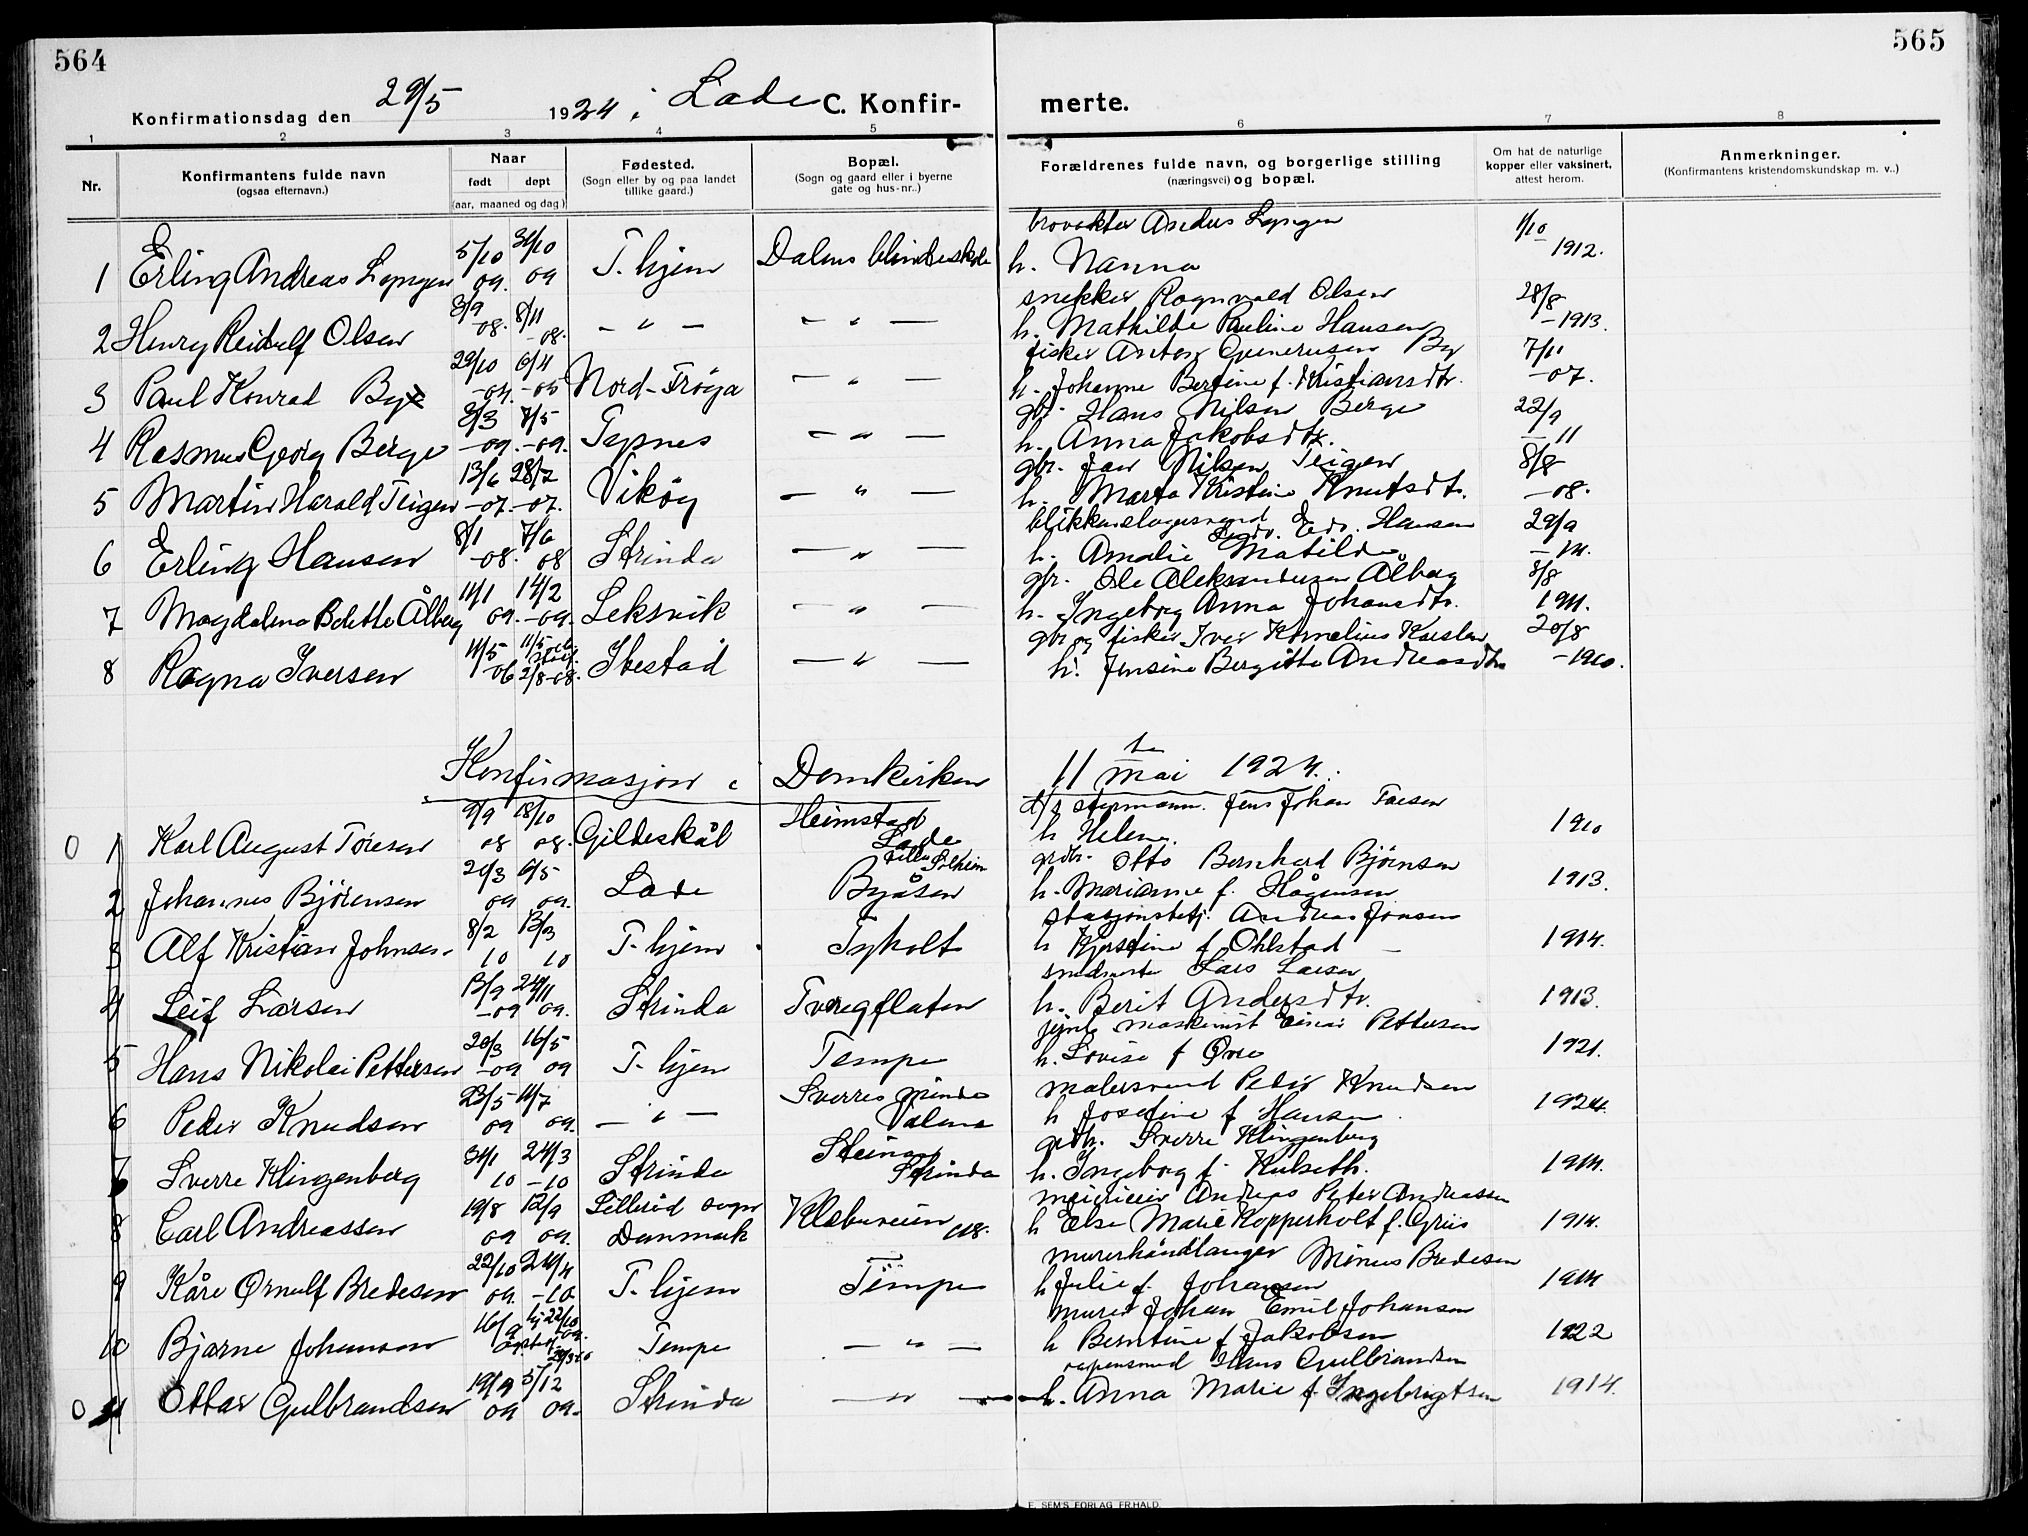 564
565
Konfirmationsdag den 29/5 1924 i Lade C. Konfir-
merte.
1 2 3 4 5 6 7 8
Nr.
Konfirmantens fulde navn
(ogsaa efternavn.)
Naar
født døpt
(aar, maaned og dag)
Fødested.
(Sogn eller by og paa landet
tillike gaard.)
Bopæl.
(Sogn og gaard eller i byerne
gate og hus-nr.)
Forældrenes fulde navn, og borgerlige stilling
(næringsvei) og bopæl.
Om hat de naturlige
kopper eller vaksinert,
attest herom.
Anmerkninger.
(Konfirmantens kristendomskundskap m. v.)
1 Erling Andreas Lyngen 5/10 09. 31/10 09 T. hjem Dalens blindeskole Anders Lyngen h. Nanna 1/10 1912.
2 Henry Reidulf Olsen 3/9 -08. 8/11 -08. — " — — " — snekker Ragnvald Olsen h. Mathilde Pauline Hansen 28/8 -1913.
3 Paul Konrad By 29/10 Nord-Frøya — " — fisker Anton Gunerusen By h. Johanne Bertine f. Kristiansdtr. 7/11 -07.
4 Rasmus Georg Berge 3/3 -09. 7/5 -09. — " — gbr. Hans Nilsen Berge h. Anna Jakobsdtr. 22/9 -11
5 Martin Harald Teigen 13/6 -07. 28/7 -07. Vikøy — " — gbr. Jan Nilsen Teigen h. Marta Kristine Knutsdtr. 8/8 -08.
6 Erling Hansen 8/1 -08. 7/6 08 Strinda — " — blikkenslagersvend Hansen h. Amalie Matilde 29/9 -14.
7 Magdalena Bolette Ålberg 11/1 09. 14/2 -09. Leksvik — " — gbr. Ole Aleksandersen Alberg h. Ingeborg Anna Johansdtr. 8/8 1911.
8 Ragna Iversen 11/5 -06 2/8-08. Ibestad — " — gbr. og fisker Iver Kornelius Karlsen h. Jensine Bergitte Andreasdtr. 20/8 -1910.
Konfirmasjon i Domkirken 11 te mai 1924.
0 1 Karl August Toresen 9/9 08 18/10 08. Gildeskål Heimstad Lade styrmann Jens Johan Toresen h Helene 1910
2 Johannes Bjørensen 21/3 09 6/5 09. Lade Solheim Byåsen grdbr. Otto Bernhard Bjørnsen h. Marianne f. Hågensen 1913.
3 Alf Kristian Johnsen 8/2 10 13/3 10 T. hjem Tyholt stasjonsbetj. Andreas Jonsen h Kjerstine f. Ohlstad 1914.
4 Leif Larsen 13/9 -09 24/11 09. Strinda Tvereggflaten Lars Larsen h. Berit Andersdtr. 1913.
5 Hans Nikolai Pettersen 20/3 -09 16/5 09 T. hjem Tempe maskinist Einar Pettersen h. Lovise f Øvre 1921.
6 Peder Knudsen 23/5 09 11/7 09. — " — Sverres minde Valene malersvend Peder Knudsen h Josefine f Hansen 1924.
7 Sverre Klingenberg 31/1 10 24/3 -10 Strinda Steinan Strinda grdbr. Sverre Klingenberg h. Ingeborg f. Hulseth. 1914.
8 Carl Andreassen 19/8 09 12/9 09. Lillerød sogn Danmark Klæbuveien 118. meierieier Andreas Peter Andreassen h Else Marie Kopperholt f. Griis 1914.
9 Kåre Ørnulf Bredesen 22/10 09. 24/4 -10 T. hjem Tempe murerhåndlanger Minus Bredesen h Julie f. Johansen 1914
10 Bjarne Johansen 16/9 Tempe — " — murer Johan Emil Johansen h Berntine f Jakobsen 1922
0 11 Ottar Gulbrandsen 19/9 09 5/12 09. Strinda — " — Hans Gulbrandsen h. Anna Marie f. Ingebrigtsen 1914.
E. SEM'S FORLAG FR.HALD